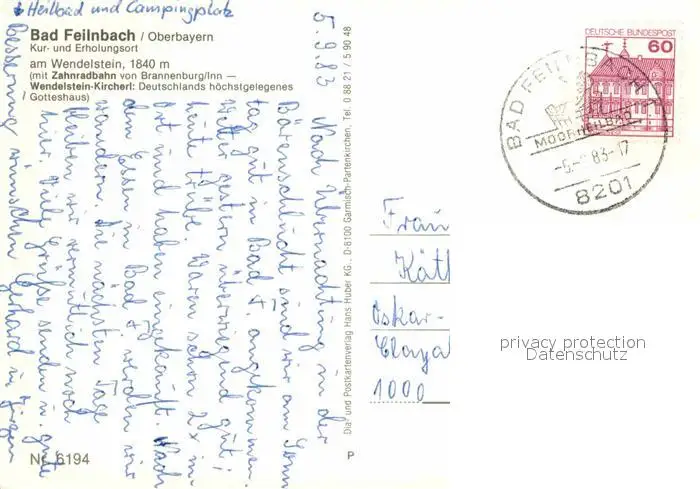 ↓ Heilbad und Campingplatz
Bad Feilnbach / Oberbayern
Kur- und Erholungsort
am Wendelstein, 1840 m
(mit Zahnradbahn von Brannenburg/Inn —
Wendelstein-Kircherl: Deutschlands höchstgelegenes
Gotteshaus)
5.9.83
Nach Übernachtung in der
Bärenschlucht sind wir am Sonn
tag gut in Bad ↓ angekommen.
Wetter gestern überwiegend gut;
heute trübe. Waren schon 2x im
Ort und haben eingekauft. Nach
dem Essen in Bad ↓ werden wir
wandern. Die nächsten Tage
bleiben wir vermutlich noch
hier. Viele Grüße senden u. gute
Besserung wünschen Gerhard u. Jürgen
Nr. 6194
Dia- und Postkartenverlag Hans Huber KG., D-8100 Garmisch-Partenkirchen, Tel. 0 88 21 / 5 90 48
P
DEUTSCHE BUNDESPOST
60
BAD FEILNBACH
MOORHEILBAD
-5.-83-17
8201
Frau
Kät
Oskar-
1000
privacy protection
Datenschutz